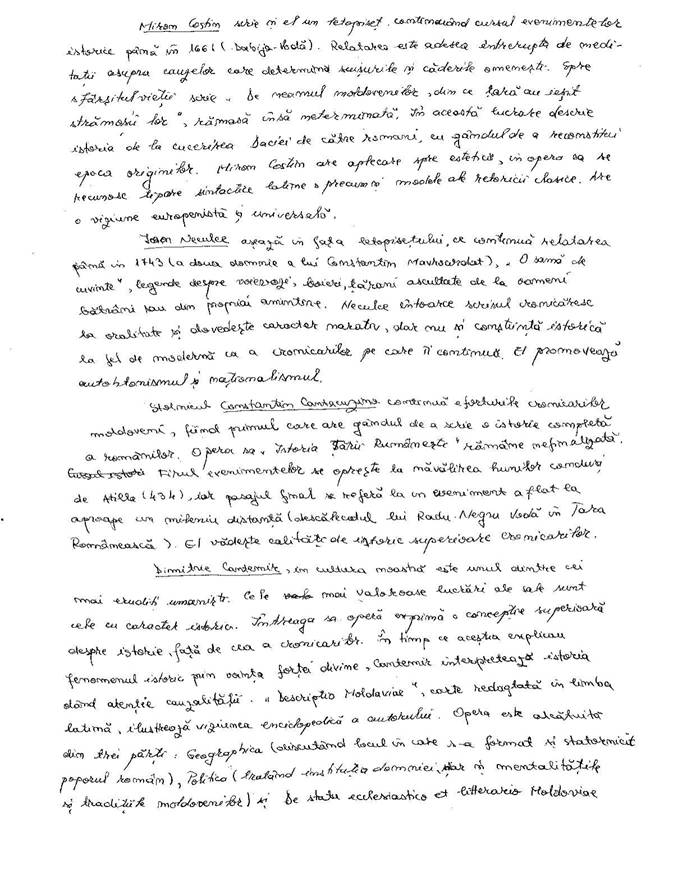 Miron Costin scrie și el un letopiseț, continuând cursul evenimentelor
istorice până în 1661 (Dabija-Vodă). Relatarea este adesea întreruptă de medi-
tații asupra cauzelor care determină suișurile și căderile omenești. Spre
sfârșitul vieții scrie „De neamul moldovenilor, din ce țară au ieșit
strămoșii lor", rămasă însă neterminată. În această lucrare descrie
istoria de la cucerirea Daciei de către romani, cu gândul de a reconstitui
epoca originilor. Miron Costin are aplecare spre estetică, în opera sa se
recunosc tipare sintactice latine, precum și modele ale retoricii clasice. Are
o viziune europenistă și universală.
Ioan Neculce așează în fața letopisețului, ce continuă relatarea
până în 1743 (a doua domnie a lui Constantin Mavrocordat), „O samă de
cuvinte", legende despre voievozi, boieri, țărani ascultate de la oameni
bătrâni sau din propriai amintire. Neculce întoarce scrisul cronicăresc
la oralitate și dovedește caracter narativ, dar nu și conștiință istorică
la fel de modernă ca a cronicarilor pe care îi continuă. El promovează
autohtonismul și naționalismul.
Stolnicul Constantin Cantacuzino continuă eforturile cronicarilor
moldoveni, fiind primul care are gândul de a scrie o istorie completă
a românilor. Opera sa „Istoria Țării Rumânești" rămâne nefinalizată.
Firul evenimentelor se oprește la năvălirea hunilor conduși
de Atilla (434), iar pasajul final se referă la un eveniment aflat la
aproape un mileniu distanță (descălecatul lui Radu-Negru Vodă în Țara
Românească). El vădește calități de istoric superioare cronicarilor.
Dimitrie Cantemir, în cultura noastră este unul dintre cei
mai erudiți umaniști. Cele mai valoroase lucrări ale sale sunt
cele cu caracter istoric. Întreaga sa operă exprimă o concepție superioară
despre istorie, față de cea a cronicarilor. În timp ce aceștia explicau
fenomenul istoric prin voința forței divine, Cantemir interpretează istoria
dând atenție cauzalității. „Descriptio Moldaviae", carte redactată în limba
latină, ilustrează viziunea enciclopedică a autorului. Opera este alcătuită
din trei părți: Geographica (discutând locul în care s-a format și statornicit
poporul român), Politica (tratând instituția domniei, dar și mentalitățile
și tradițiile moldovenilor) și De statu ecclesiastico et litterario Moldaviae